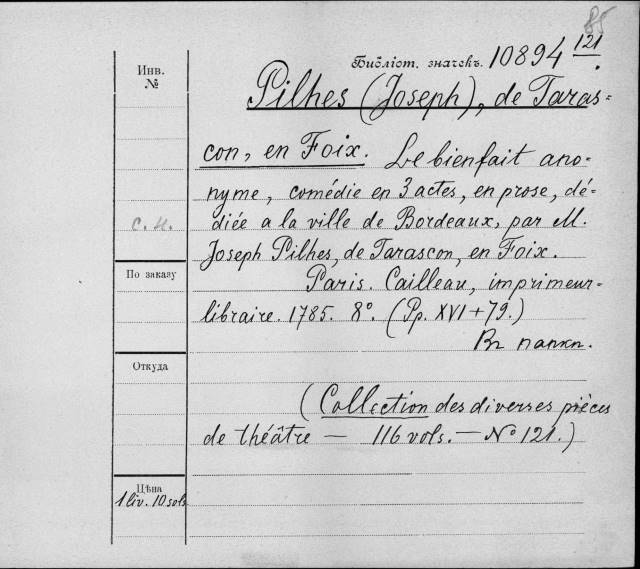 Инв.
№
Библіот. значекъ. 10894 121
Pilhes (Joseph), de Taras=
con, en Foix. Le bienfait ano-
nyme, comédie en 3 actes, en prose, dé-
diée a la ville de Bordeaux, par M.
с. н.
Joseph Pilhes, de Tarascon, en Foix.
По заказу
Paris. Cailleau, imprimeur-
libraire. 1785. 8º. (Pp. XVI + 79.)
Въ папкѣ.
Откуда
(Collection des diverses pièces
de théâtre — 116 vols. — Nº 121.)
Цѣна
1 liv. 10 sols